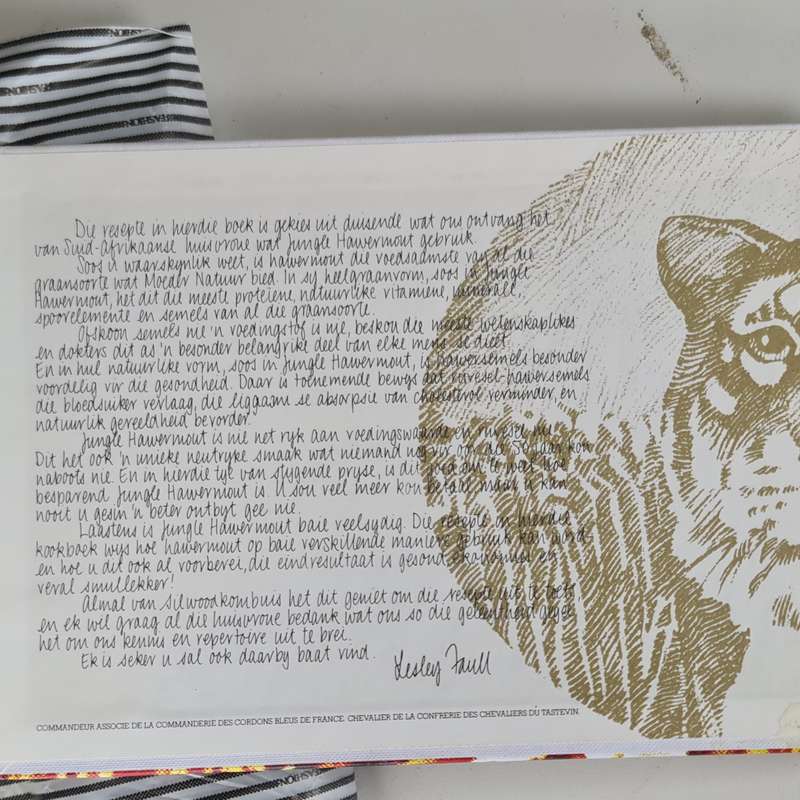 Die resepte in hierdie boek is gekies uit duisende wat ons ontvang het
van Suid-Afrikaanse huisvroue wat Jungle Hawermout gebruik.
Soos u waarskynlik weet, is hawermout die voedsaamste van al die
graansoorte wat Moeder Natuur bied. In sy heelgraanvorm, soos in Jungle
Hawermout, het dit die meeste proteïene, natuurlike vitamiene, minerale,
spoorelemente en semels van al die graansoorte.
Ofskoon semels nie 'n voedingstof is nie, beskou die meeste wetenskaplikes
en dokters dit as 'n besonder belangrike deel van elke mens se dieet.
En in hul natuurlike vorm, soos in Jungle Hawermout, is hawersemels besonder
voordelig vir die gesondheid. Daar is toenemende bewys dat ruvesel-hawersemels
die bloedsuiker verlaag, die liggaam se absorpsie van cholesterol verminder, en
natuurlik gereeldheid bevorder.
Jungle Hawermout is nie net ryk aan voedingswaarde en ruvesel nie.
Dit het ook 'n unieke neutryke smaak wat niemand nog vir op die kon
naboots nie. En in hierdie tye van stygende pryse, is dit goed om te weet hoe
besparend Jungle Hawermout is. U sou veel meer kon betaal maar u kan
nooit u gesin 'n beter ontbyt gee nie.
Laastens is Jungle Hawermout baie veelsydig. Die resepte in hierdie
kookboek wys hoe hawermout op baie verskillende maniere gebruik kan word
en hoe u dit ook al voorberei, die eindresultaat is gesond, ekonomies en
veral smullekker!
Almal van Silwoodkombuis het dit geniet om die resepte uit te toets
en ek wil graag al die huisvroue bedank wat ons so die geleentheid gegee
het om ons kennis en repertoire uit te brei.
Ek is seker u sal ook daarby baat vind.
Lesley Faull
COMMANDEUR ASSOCIE DE LA COMMANDERIE DES CORDONS BLEUS DE FRANCE. CHEVALIER DE LA CONFRERIE DES CHEVALIERS DU TASTEVIN.
FASHION